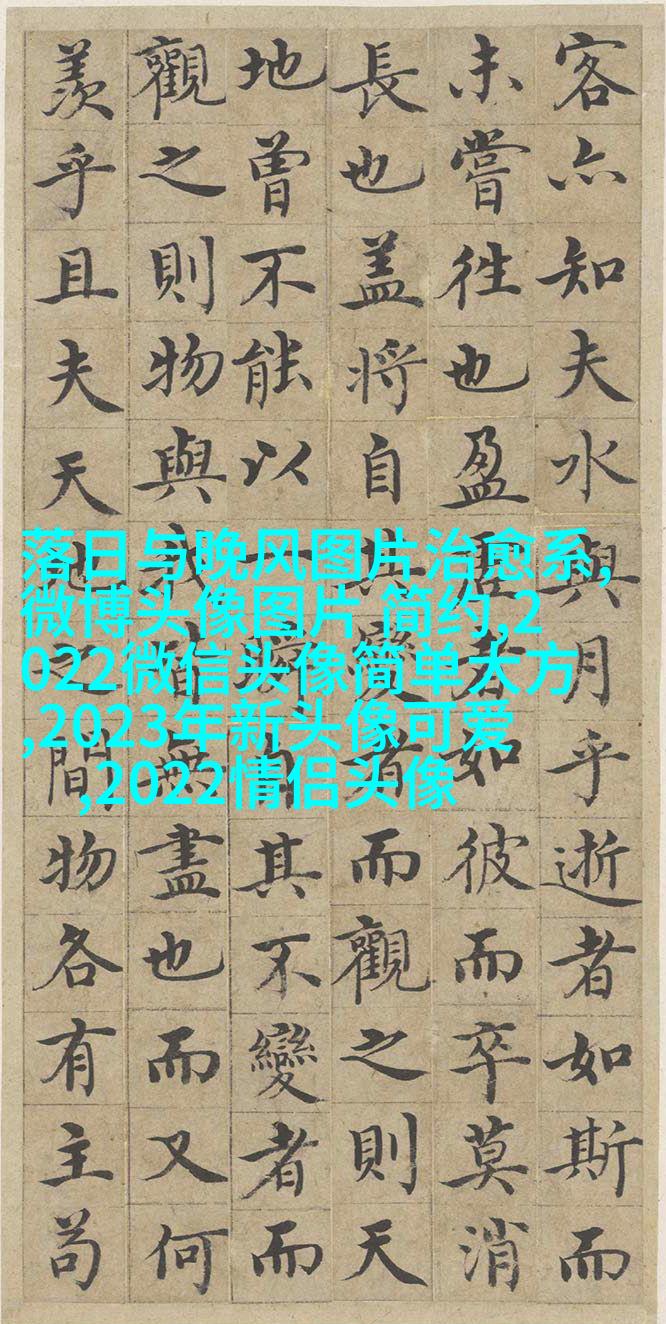 客亦知夫水與月乎逝者如斯而
未嘗往也盈虛者如彼而卒莫消
長也盖將自其變者而觀之則天
地曾不能以一瞬自其不變者而
觀之則物與我皆無盡也而又何
羨乎且夫天地之間物各有主苟
落日与晚风图片治愈系,
微博头像图片 简约,2
022微信头像简单大方
,2023年新头像可爱
,2022情侣头像